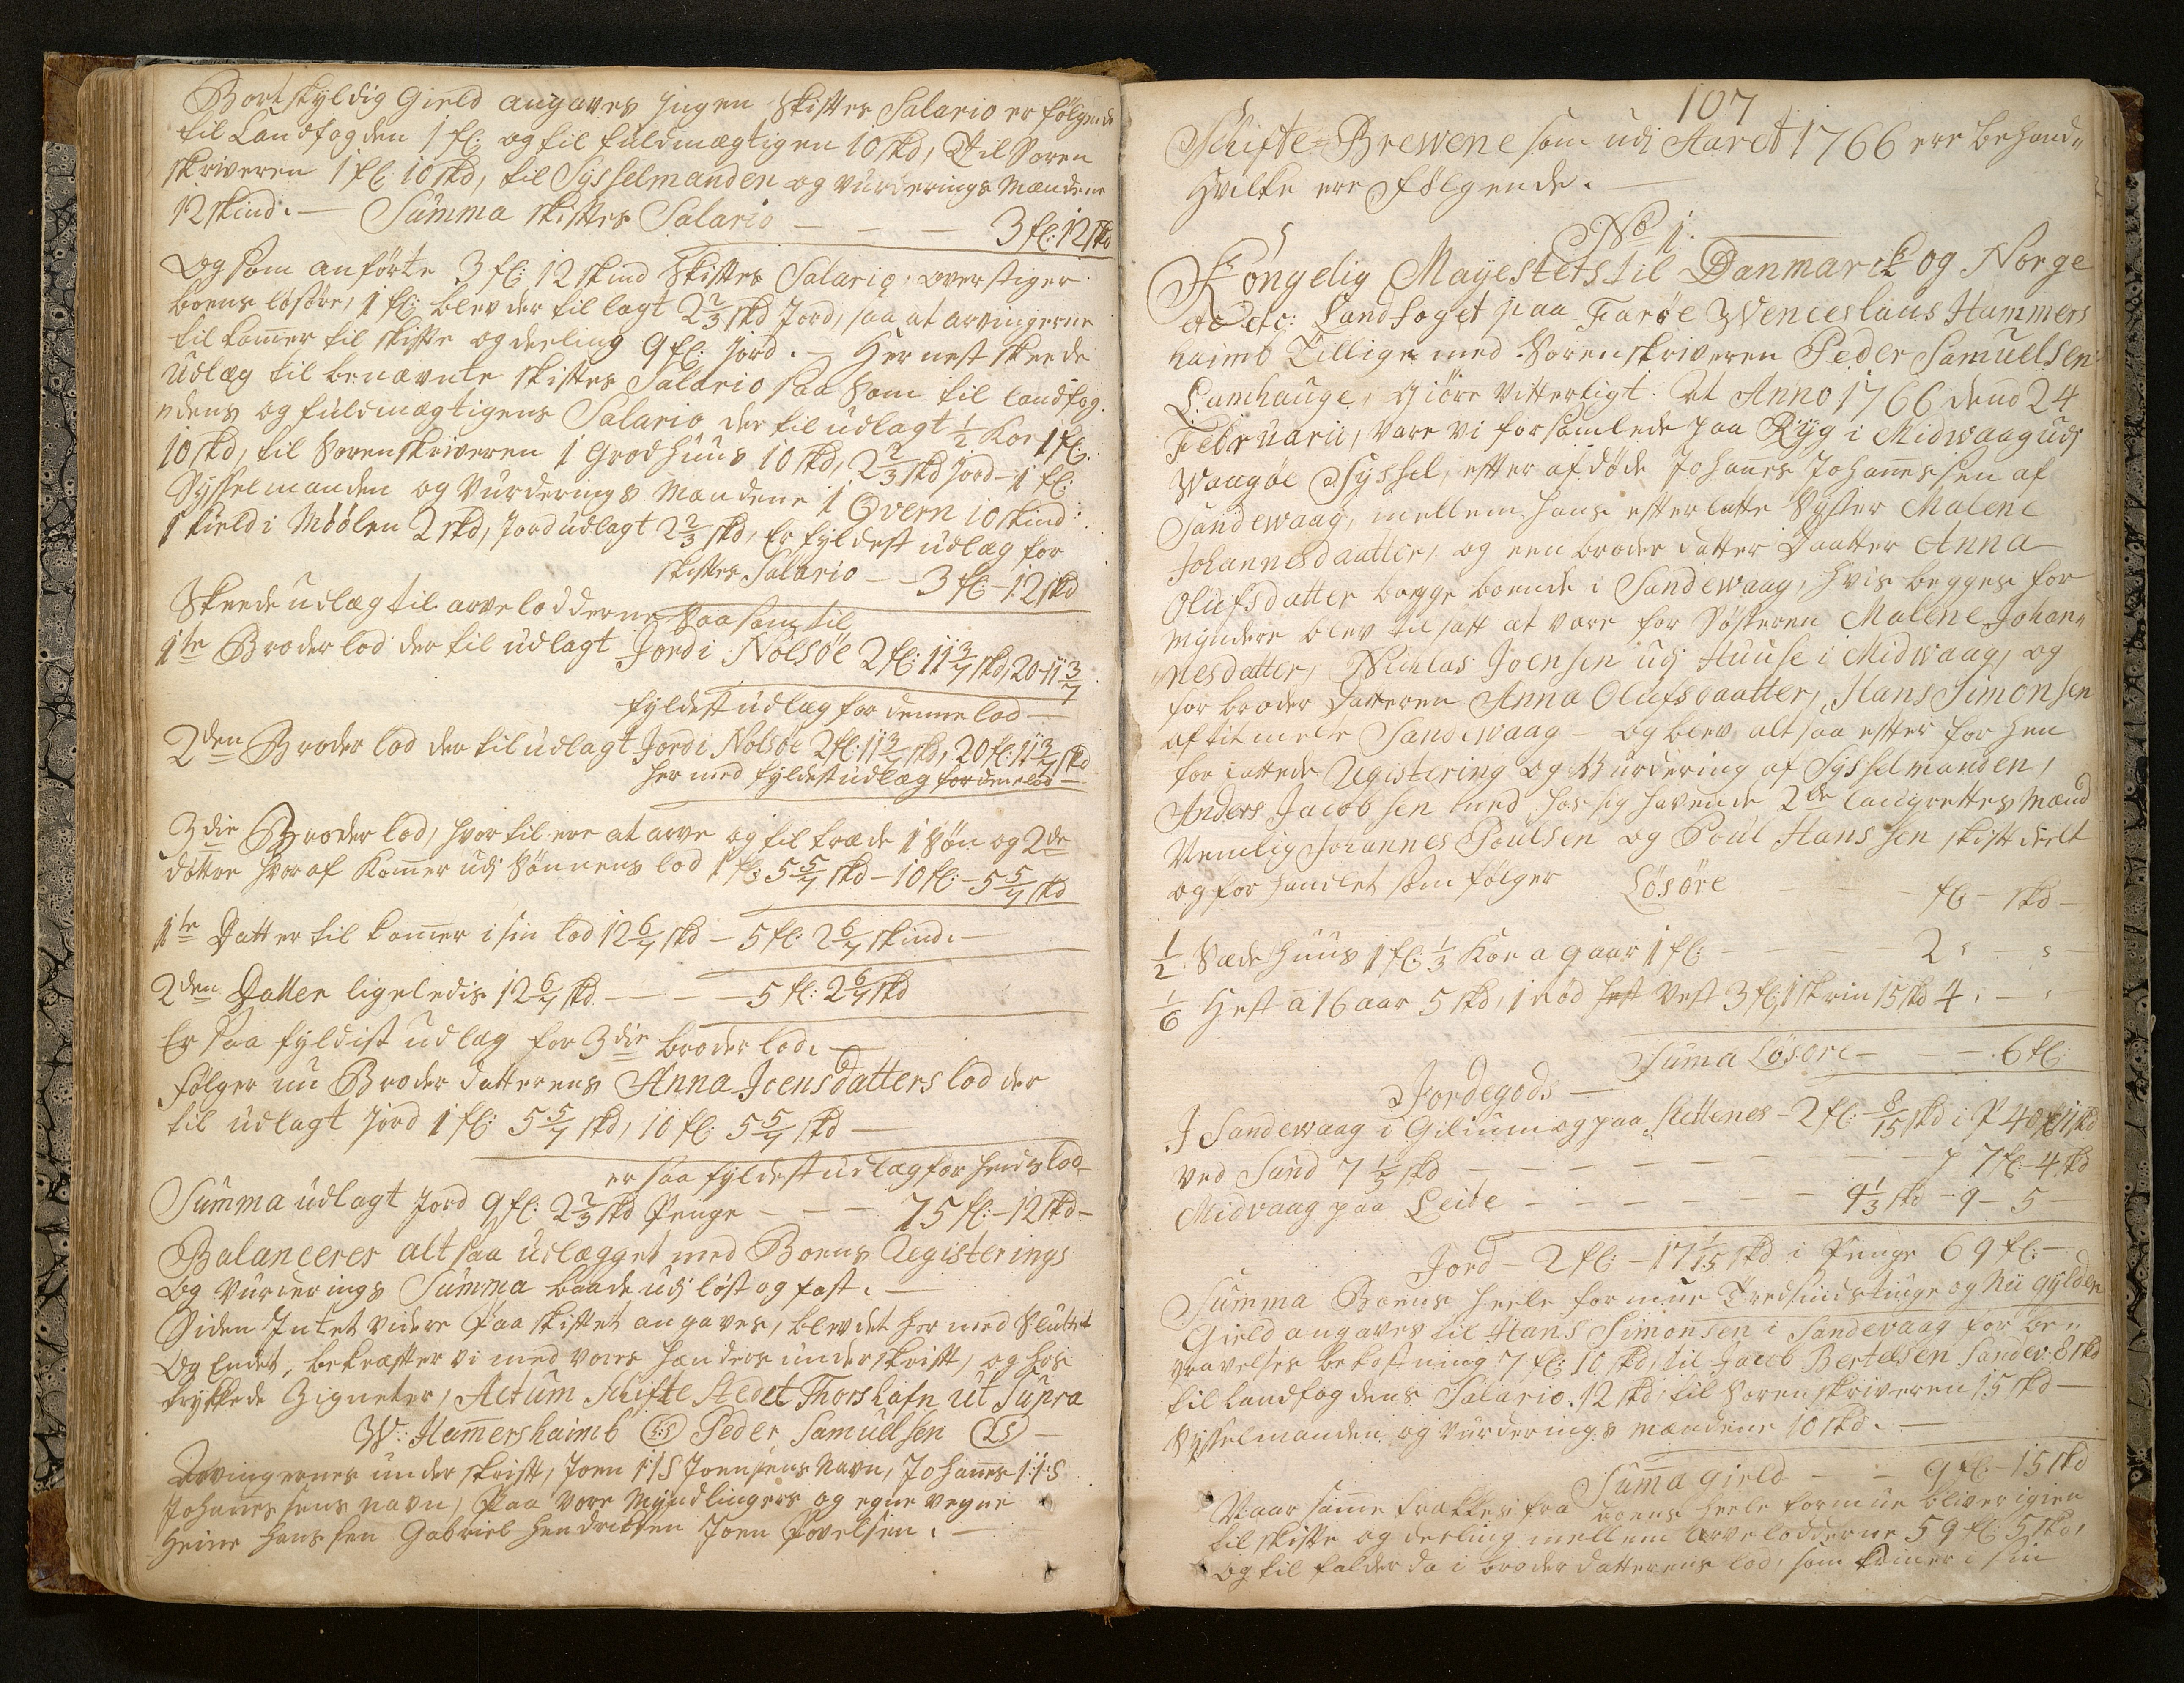 Bortskyldig Gield angaves Jngen Skiftes Salario er følgende
til Landfogden 1 fl: og til fuldmægtigen 10 skd, Til Soren
skriveren 1 fl 10 skd, til Sysselmanden og Vurderings Mændene
12 skind. — Summa skiftes Salario — — — 3 fl: 12 skd
Og som anførte 3 fl: 12 skind Skiftes Salario, overstiger
boens løsøre, 1 fl: blev der til lagt 2 2/3 skd Jord, saa at arvingerne
til komer til skifte og deeling 9 fl: Jord. — Hernest skeede
Udlæg til benævnte skiftes Salario saa som til landfog
edens og fuldmægtigens Salario der til udlagt 1/2 Koe 1 fl:
10 skd, til Sorenskriveren 1 Grodhuus 10 skd, 2 2/3 skd Jord - 1 fl:
Sysselmanden og Vurderings Mændene 1 Qvern 10 skind:
1 kield i Møølen 2 skd, Jord udlagt 2 2/3 skd, Er fyldest udlæg for
skiftes Salario — 3 fl - 12 skd
Skeede udlæg til arvelodderne saa som til
1te Broder lod der til udlagt Jord i Nolsøe 2 fl: 11 3/7 skd, 20 - 11 3/7
fyldest udlæg for denne lod —
2den Broder lod der til udlagt Jord i Nolsøe 2 fl: 11 3/7 skd, 20 fl: 11 3/7 skd
her med fyldest udlæg for dene lod —
3die Broder lod, hvor til ere at arve og til træde 1 Søn og 2de
døttre hvor af Komer udj Sønnens lod 1 fl: 5 5/7 skd - 10 fl: - 5 5/7 skd
1te Datter til komer i sin lod 12 6/7 skd - 5 fl: 2 6/7 skind. —
2den Datter ligeledis 12 6/7 skd — — — 5 fl: 2 6/7 skd
Er saa fyldist udlæg for 3die broder lod. —
følger nu Broder datterens Anna Joensdatters lod der
til udlagt Jord 1 fl: 5 5/7 skd, 10 fl: 5 5/7 skd —
er saa fyldest udlæg for hendes lod —
Summa udlagt Jord 9 fl: 2 2/3 skd Penge — — — 75 fl: - 12 skd -
Balancerer alt saa udlægget med Boens Registerings
og Vurderings Summa baade udj løst og fast. —
Siden Intet videre Paa skiftet angaves, blev det her med Sluttet
Og Endet, bekræfter vi med vores hænders underskrift, og hos
trykkede Zigneter, Actum Skifte Stedet Thorshafn ut Supra
W: Hamershaimb (L:S) Peder Samuelsen (LS) —
Arvingernes underskrift, Joen I:I:S Joensens Navn, Johanes I:I:S
Johanesens navn, Paa vore Myndlingers og egne vegne
Heine Hanssen Gabriel Hendricksen Joen Povelsen. —
107
Skifte-Brewene som udi Aaret 1766 ere behand„
Hvilke ere følgende. —
No 1.
Kongelig Mayestets til Danmarck og Norge
etc etc: Landfoget paa Farøe Wenceslaus Hammers
haimb Tillige med Sorenskriveren Peder Samuelsen
Lamhauge, giøre vitterligt: At Anno 1766 dend 24
Februarii, vare vi forsamlede paa Ryg i Midwaag udj
Waagøe Syssel, efter afdøde Johanes Johanessen af
Sandewaag, mellem hans efterlatte Syster Malene
Johannesdaatter, og een broder datter Daatter Anna
Olufsdatter begge boende i Sandewaag, hvis begges for
myndere blev tilsatt at vare for Søsteren Malene Johan„
nesdatter, Nichlas Joensen udj Huuse i Midwaag, og
for broder Datteren Anna Olufsdaatter, Hans Simonsen
af titmelr Sandewaag - og blev altsaa efter for hen
for fattede Registering og Vurdering af Sysselmanden,
Anders Jacobsen med hos sig havende 2de laugrettes Mænd
Nemlig Johannes Poulsen og Poul Hanssen skift deelt
og forhandlet som følger Løsøre — fl - skd -
1/2 Sæde huus 1 fl: 1/3 Koe a 9 aar 1 fl: — — — 2 . s -
1/6 Hest a 16 aar 5 skd, 1 rød hest Vest 3 fl: 1 skrin 15 skd 4. - .
Suma Løsøre — — — 6 fl:
Jordegods —
I Sandewaag i Giliumog paa Slettenes - 2 fl: - 8/15 skd i P 40 fl 11 skd
ved Sund 7 1/5 skd — — — — — — 7 fl: 4 skd
Midvaag paa Leite — — — — — 9 1/3 skd - 9 - 5 -
Jord - 2 fl: - 17 1/15 skd i Penge 69 fl: -
Summa Boens heele formue Tredsindstiuge og Nii gylden
Gield angaves til Hans Simonsen i Sandevaag for be„
gravelses bekostning 7 fl: 10 skd, til Jacob Bertelsen Sandev: 8 skd
til Landfogdens Salario. 12 skd til Sorenskriveren 15 skd —
Sysselmanden og Vurderings mændene 10 skd. —
Suma gield — — 9 fl - 15 skd
Naar same trækkes fra boens heele formue bliver igien
til skifte og deeling mellem arvelodderne 59 fl 5 skd,
og til falder da i broder datterens lod, som komer i sin